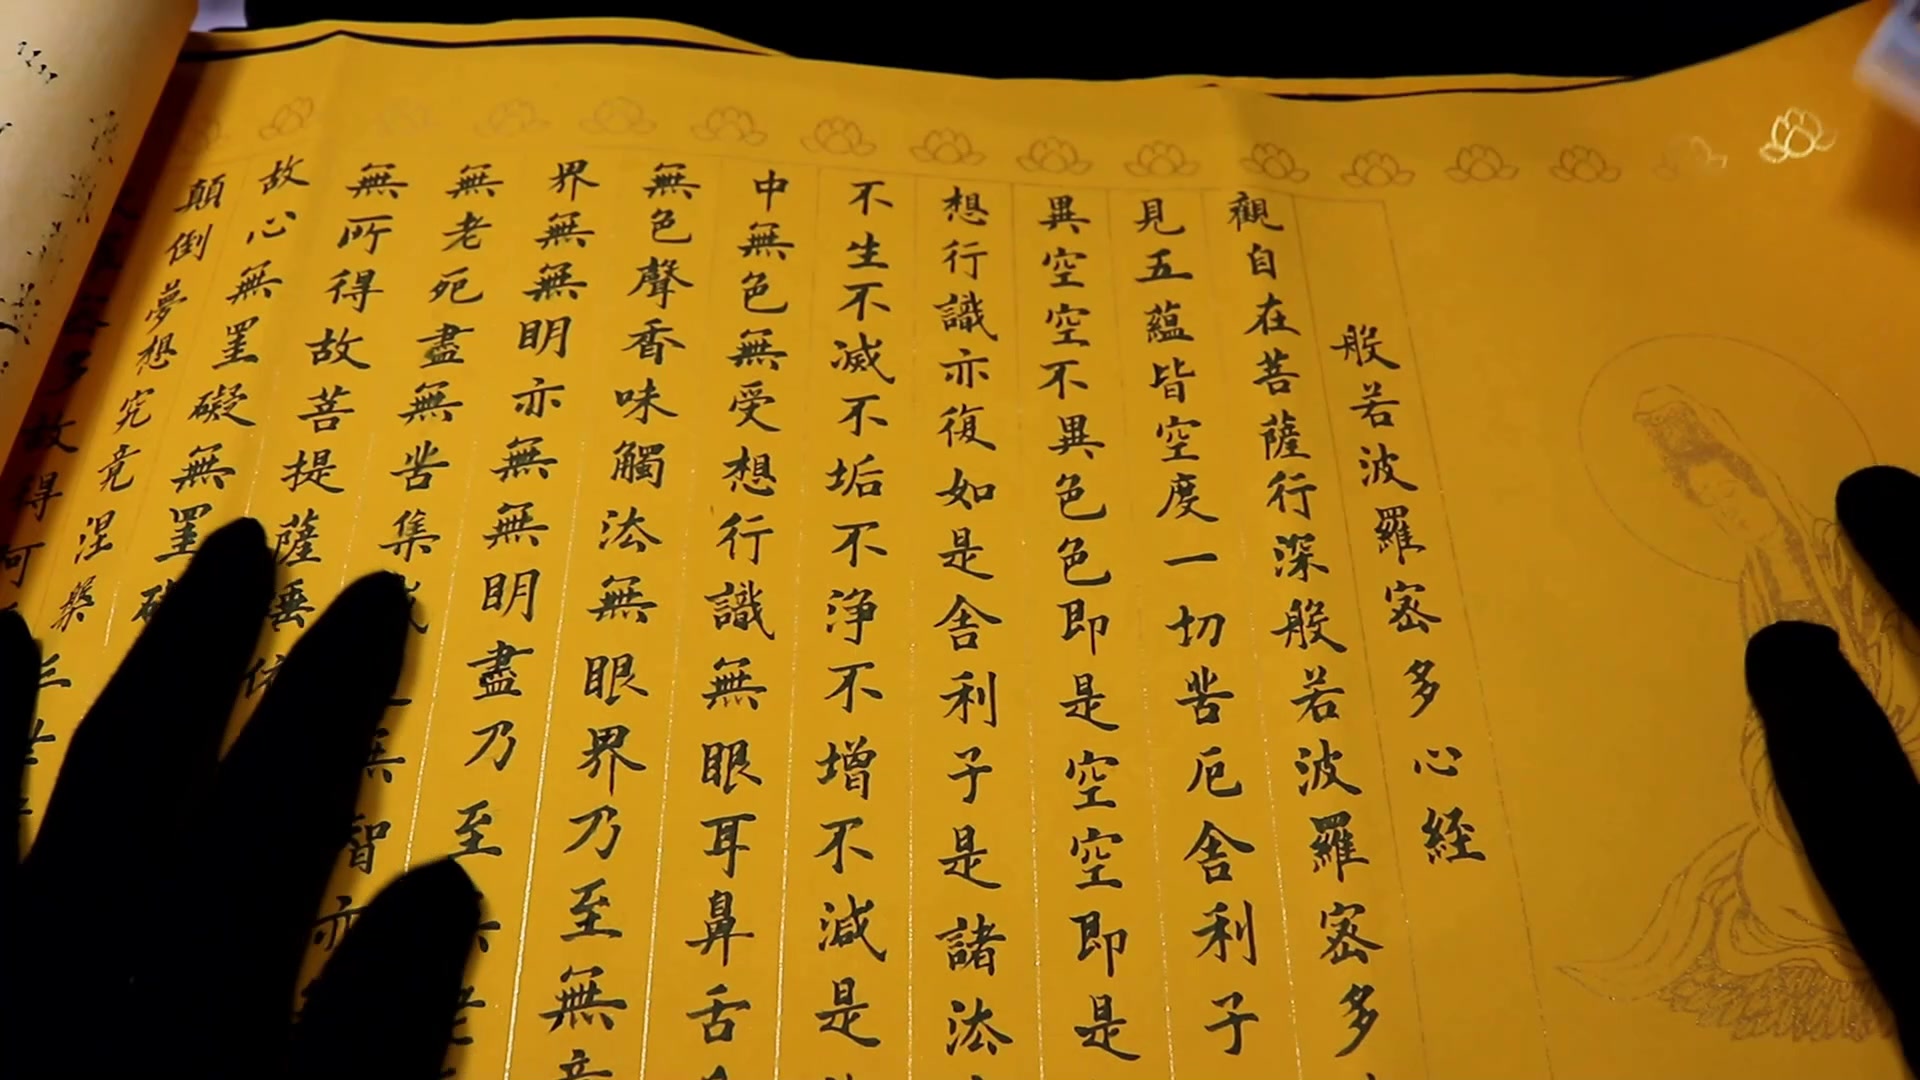 般若波羅密多心経
觀自在菩薩行深般若波羅密多
見五蘊皆空度一切苦厄舍利子
異空空不異色色即是空空即是
想行識亦復如是舍利子是諸法
不生不滅不垢不淨不增不減是
中無色無受想行識無眼耳鼻舌
無色聲香味觸法無眼界乃至無
界無無明亦無無明盡乃至
無老死盡無苦集
無所得故菩提薩埵
故心無罣礙無罣
顛倒夢想究竟涅槃
多故得